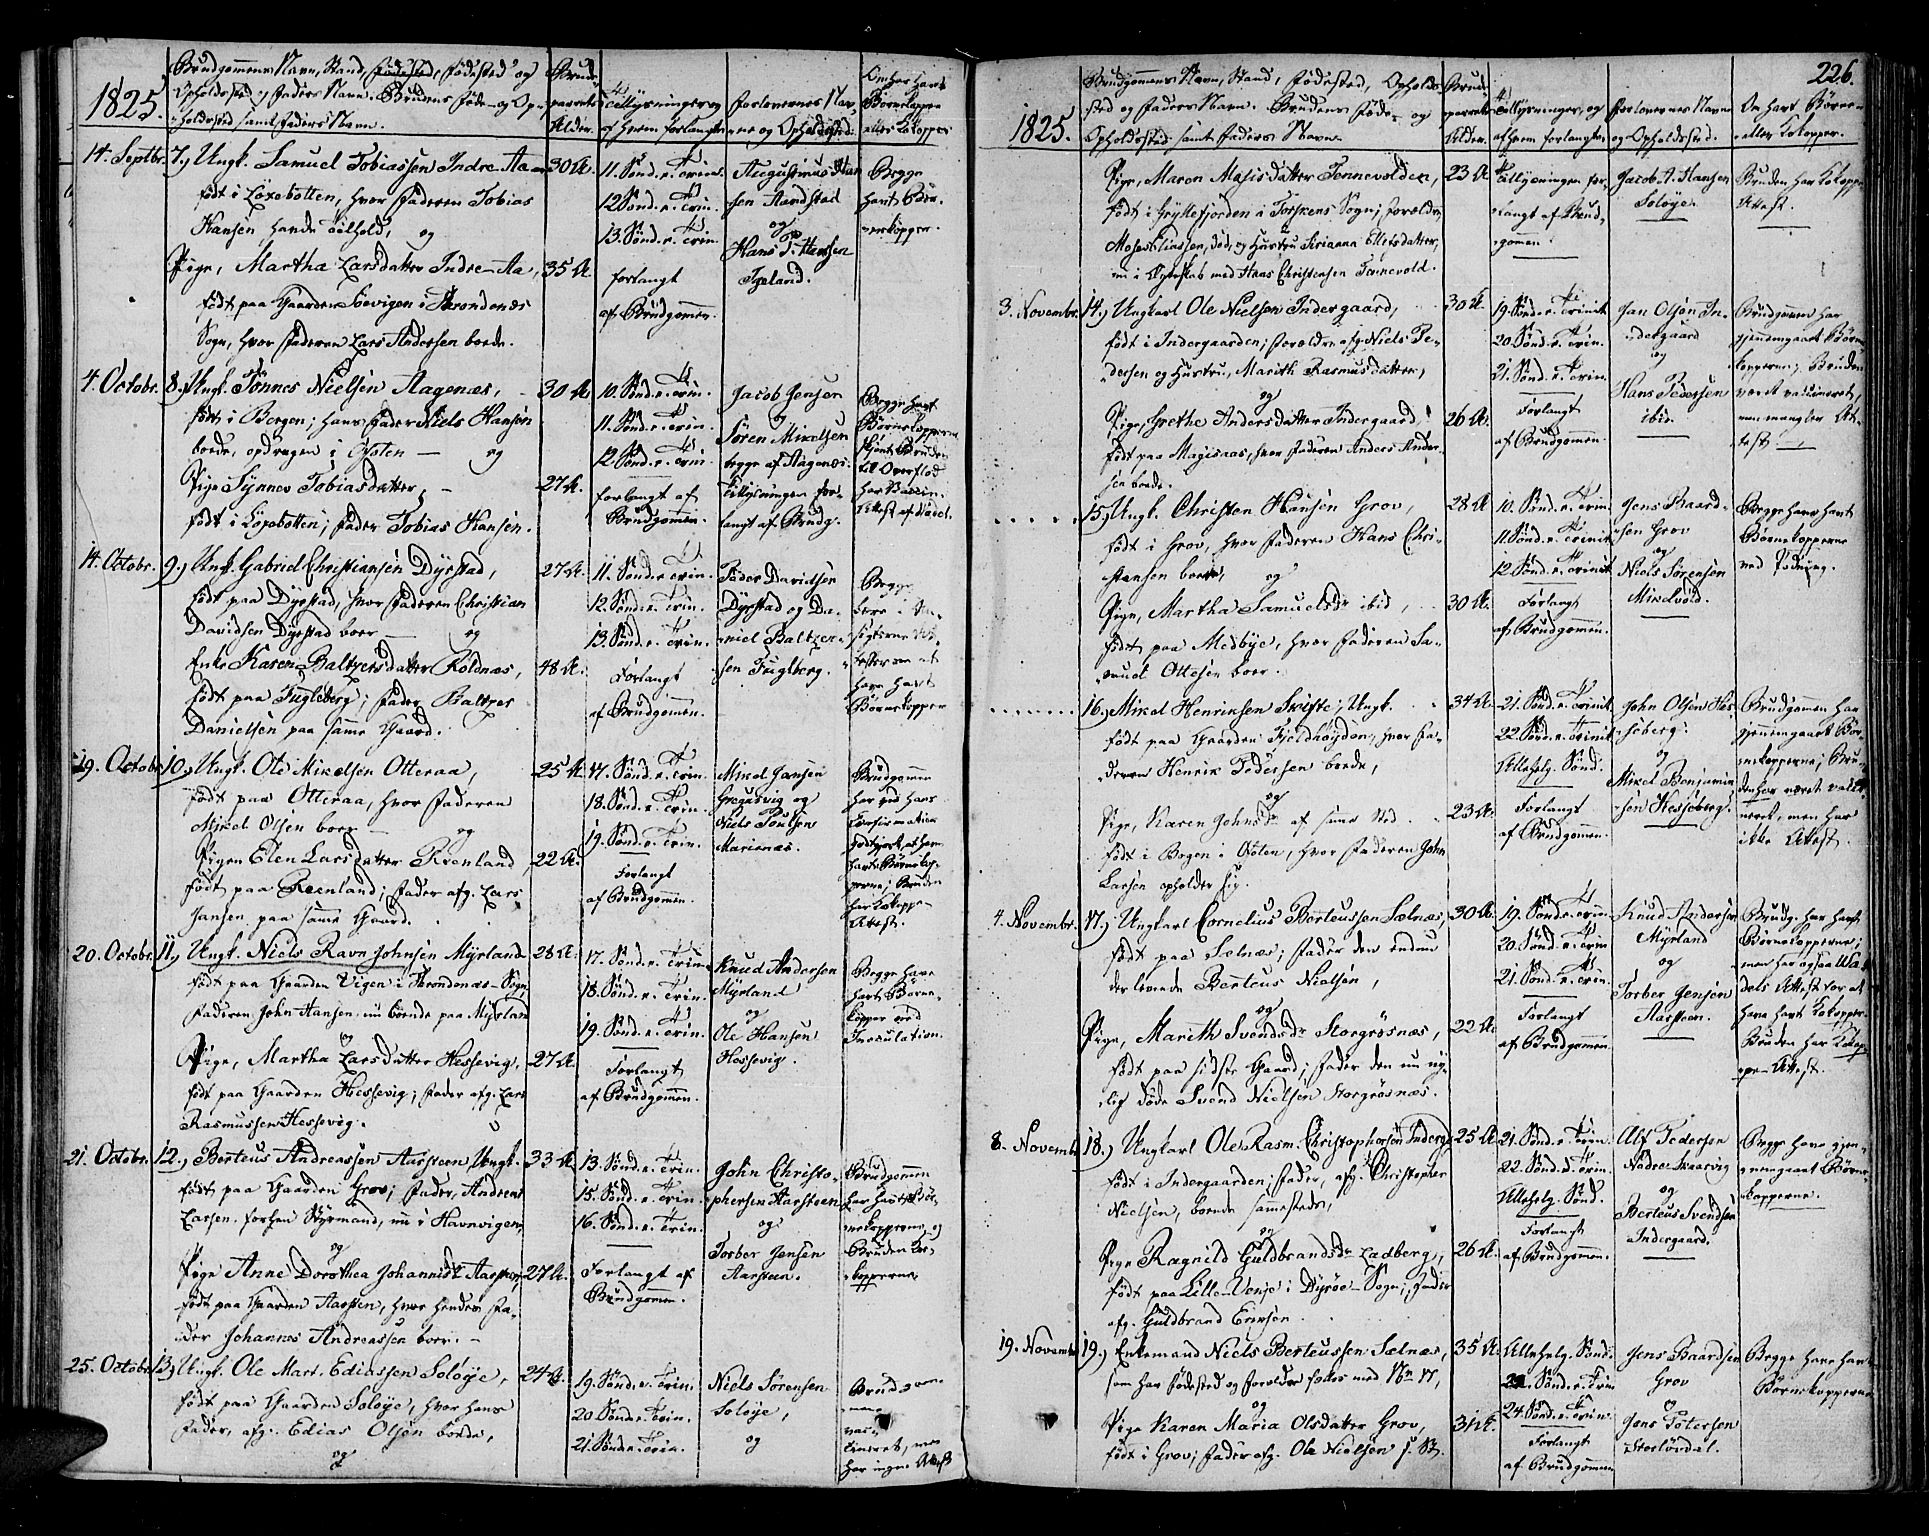 1825.
Brudgommens Navn, Stand, Fødested, Fødested og
Opholdssted og Faders Navn. Brudens Føde- og Op-
holdssted samt Faders Navn.
Brude-
parrets
Alder.
Tillysninger og
af hvem forlangte
Forlovernes Nav-
ne og Opholdssted.
Om har havt
Børnekopper
eller Kokopper
14. Septbr. 7.) Ungk. Samuel Tobiassen Indre-Aa
født i Løxebotten, hvor Faderen Tobias
Hansen havde Tilhold, og
Pige, Martha Larsdatter Indre-Aa,
født paa Gaarden Søevigen i Trondenæs
Sogn, hvor Faderen Lars Andersen boede.
30 A.
35 A.
11. Sønd. e. Trin.
12. Sønd. e. Trin.
13. Sønd. e. Trin.
forlangt
af Brudgommen.
Augustinus Han
sen Aandstad
og
Hans P. Hansen
Tyeland.
Begge
havt Bør-
nekopper.
4. Octobr. 8.) Ungk. Tønnes Nielsen Aagenæs,
født i Bergen; hans Fader Niels Hansen
boede, opdragen i Ofoten — og
Pige Synnev Tobiasdatter,
født i Løxebotten; Fader Tobias Hansen.
30 A.
27 A.
10. Sønd. e. Trin.
11. Sønd. e. Trin.
12. Sønd. e. Trin.
forlangt af
Brudgommen.
Jacob Jensen
og
Søren Mikelsen
begge af Aagenæs.
Tillysningen for-
langt af Brudg.
Begge havt
Børnekopperne
skjønt Bruden
til Overflod
har Vaccin.
Attest af
14. Octobr. 9.) Ungk. Gabriel Christiansen Dyrstad,
født paa Dyrstad, hvor Faderen Christian
Davidsen Dyrstad boer — og
Enke Karen Baltzersdatter Roldnæs,
født paa Fugleberg; Fader Baltzer
Danielsen paa samme Gaard.
27 A.
48 A.
11. Sønd. e. Trin.
12. Sønd. e. Trin.
13. Sønd. e. Trin.
Forlangt
af Brudgommen.
Peder Davidsen
Dyrstad og Da-
niel Baltzer-
sen Fuglberg.
Begge
have havt
Børnekopper
19. Octobr. 10.) Ungk. Ole Mikelsen Otteraa,
født paa Otteraa, hvor Faderen
Mikel Olsen boer — og
Pigen Elen Larsdatter Reenland
født paa Reenland; Fader afg. Lars
Jansen paa samme Gaard.
25 A.
22 A.
17. Sønd. e. Trin.
18. Sønd. e. Trin.
19. Sønd. e. Trin.
Forlangt
af Brudgommen.
Mikel Jansen
Gregusvig og
Niels Poulsen
Marienæs.
Brudgommen
har ved hans
Confirmation
godtgjort at have
havt Børnekop-
perne; Bruden
har Kokoppe-
Attest.
20. Octobr. 11.) Ungk. Niels Ravn Johnsen Myrland
født paa Gaarden Vigen i Trondenæs-Sogn,
Faderen John Hansen nu boende paa Myrland
og
Pige, Martha Larsdatter Hessevig,
født paa Gaarden Hessevig; Fader afg. Lars
Rasmussen Hessevig.
28 A.
27 A.
17. Sønd. e. Trin.
18. Sønd. e. Trin.
19. Sønd. e. Trin.
Forlangt
af Brudgommen.
Knud Andersen
Myrland
og
Ole Hansen
Hessevig.
Begge have
havt Børne-
kopper ved
Inoculation.
21. Octobr. 12.) Berteus Andreassen Aarsteen Ungk.
født paa Gaarden Grov; Fader, Andreas
Larsen forhen Styrmand, nu i Havnvigen,
og
Pige Anne Dorothea Johannisd. Aarsteen,
født paa Gaarden Aarsten, hvor hendes Fa-
der Johannes Andreassen boer. —
33 A.
27 A.
13. Sønd. e. Trin.
15. Sønd. e. Trin.
16. Sønd. e. Trin.
Forlangt af
Brudgommen.
John Christo-
phersen Aarsteen
og
Torber Jensen
Aarsteen.
Brudgommen
har havt Bør-
nekopperne, og
Bruden Ko-
kopperne.
25. Octobr. 13.) Ungk. Ole Mart. Ediassen Soløye,
født paa Gaarden Soløye, hvor hans
Fader, afg. Edias Olsen boede,
og
24 A.
19. Sønd. e. Trin.
20. Sønd. e. Trin.
21. Sønd. e. Trin.
Niels Sørensen
Soløye,
og
har ingen Attest
226.
1825.
Brudgommens Navn, Stand, Fødested, Opholds-
sted og Faders Navn. Brudens Føde- og
Opholdssted samt Faders Navn.
Brude-
parrets
Alder.
Tillysninger, og
af hvem forlangte
Forlovernes Navne
og Opholdssted.
Om havt Børne-
eller Kokopper.
Pige, Maren Mosisdatter Tennevolden,
født i Gryllefjorden i Torskens Sogn; Forældre
Moses Eliassen, død, og Hustru Siriana Ellefsdatter,
nu i Ægteskab med Hans Christensen Tennevold.
23 A.
Tillysningen for-
langt af Brud-
gommen.
Jacob A. Hansen
Soløye.
Bruden har Kokoppe
Attest.
3. Novembr. 14.) Ungkarl Ole Nielsen Indergaard,
født i Indergaarden; Forældre afg. Niels Pe-
dersen og Hustru, Marith Rasmusdatter,
og
Pige, Grethe Andersdatter Indergaard,
født paa Magisaas, hvor Faderen Anders Ander-
sen boede.
30 A.
26 A.
19. Sønd. e. Trinit.
20. Sønd. e. Trin.
21. Sønd. e. Trin.
Forlangt
af Brudgommen.
Jan Olsen In-
dergaard
og
Hans Pedersen
ibid.
Brudgommen har
gjennemgaaet Børne
kopperne; Bruden
været vaccineret,
men mangler At-
test.
15.) Ungk. Christen Hansen Grov,
født i Grov, hvor Faderen Hans Chri-
stansen boede, og
Pige, Martha Samuelsdr ibid,
født paa Medbye, hvor Faderen Sa-
muel Ottesen boer.
28 A.
30 A.
10. Sønd. e. Trin.
11. Sønd. e. Trinit.
12. Sønd. e. Trinit.
Forlangt
af Brudgommen.
Jens Baard-
sen Grov
og
Niels Sørensen
Mikelvold.
Begge have havt
Børnekopperne
ved Podning.
16.) Mikel Henriksen Skifte; Ungk.
født paa Gaarden Fjeldhøyden, hvor Fa-
deren Henrik Pedersen boede,
og
Pige, Karen Johnsdr af samme Sted
født i Bogen i Ofoten, hvor Faderen John
Larsen opholder sig.
34 A.
23 A.
21. Sønd. e. Trinit.
22. Sønd. e. Trinit.
Allehelg. Sønd.
Forlangt
af Brudgommen.
John Olsen Hes-
seberg.
og
Mikel Benjamin
sen Hesseberg.
Brudgommen har
gjennemgaaet Bør-
nekopperne; Bru-
den har været vacci-
neret, men har
ikke Attest.
4. Novembr. 17.) Ungkarl Cornelius Berteussen Sælnæs,
født paa Sælnæs; Fader den endnu
der levende Berteus Nielsen,
og
Pige, Marith Svendsdr Storgrøsnæs,
født paa sidste Gaard; Fader den nu ny-
lig døde Svend Nielsen Storgrøsnæs.
30 A.
22 A.
19. Sønd. e. Trin.
20. Sønd. e. Trin.
21. Sønd. e. Trin.
Forlangt
af Brudgommen.
Knud Andersen
Myrland
og
Torber Jensen
Aarsteen.
Brudg. har havt
Børnekopperne;
men har ogsaa
Attest for at
have havt Kokopper.
Bruden har Kokop-
pe-Attest.
8. Novembr. 18.) Ungkarl Ole Rasm. Christophersen Indergd
født i Indergaarden; Fader, afg. Christopher
Nielsen, boende sammesteds,
og
Pige Ragnild Guldbrandsdr Ladberg,
født paa Lille-Venje i Dyrøe-Sogn; Fader
afg. Guldbrand Ericsen.
25 A.
26 A.
21. Sønd. e. Trin.
22. Sønd. e. Trin.
Allehelg. Sønd.
Forlangt
af Brudgommen.
Alf Pedersen
Nedre Skaarvig
og
Berteus Svendsen
Indergaard.
Begge have gjen-
nemgaaet Børne-
kopperne.
19. Novembr. 19.) Enkemand Niels Berteussen Sælnæs,
som har Fødested og Forældre fælles med No 17,
og
Pige Karen Maria Olsdatter Grov,
født i Grov; Fader afg. Ole Nielsen s. St.
35 A.
31 A.
Allehelg. Sønd.
Sønd. e. Trin
24. Sønd. e. Trin.
Forlangt
af Brudgommen
Jens Baardsen
Grov
og
Jens Petersen
Storløvdal.
Begge have havt
Børnekopperne